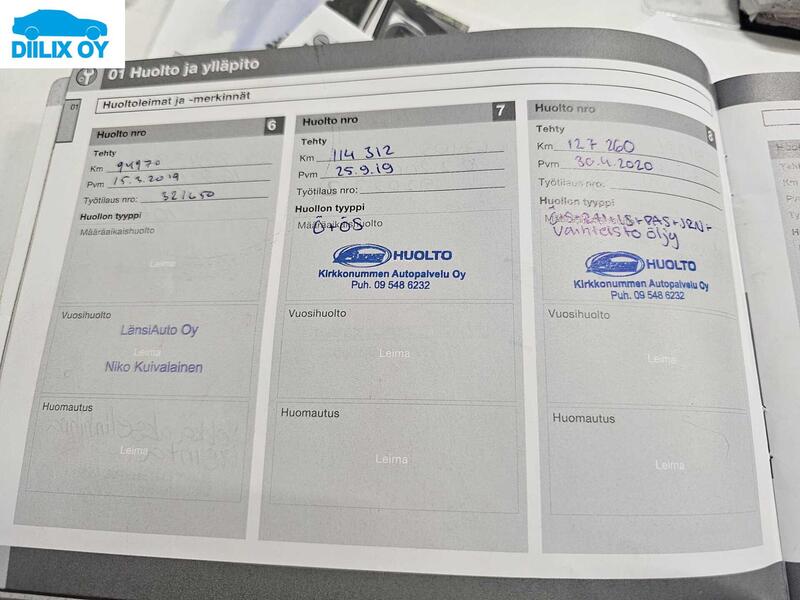 DIILIX OY
01 Huolto ja ylläpito
01
Huoltoleimat ja -merkinnät
Huolto nro 6
Tehty
Km 94970
Pvm 15.3.2019
Työtilaus nro: 321650
Huollon tyyppi
Määräaikaishuolto
Leima
Vuosihuolto
LänsiAuto Oy
Leima
Niko Kuivalainen
Huomautus
Leima
Huolto nro 7
Tehty
Km 114 312
Pvm 25.9.19
Työtilaus nro:
Huollon tyyppi
Määräaikaishuolto
Ö+ÖS
HUOLTO
Kirkkonummen Autopalvelu Oy
Puh. 09 548 6232
Vuosihuolto
Leima
Huomautus
Leima
Huolto nro 8
Tehty
Km 127 260
Pvm 30.4.2020
Työtilaus nro:
Huollon tyyppi
Vaihteisto öljy
HUOLTO
Kirkkonummen Autopalvelu Oy
Puh. 09 548 6232
Vuosihuolto
Leima
Huomautus
Leima